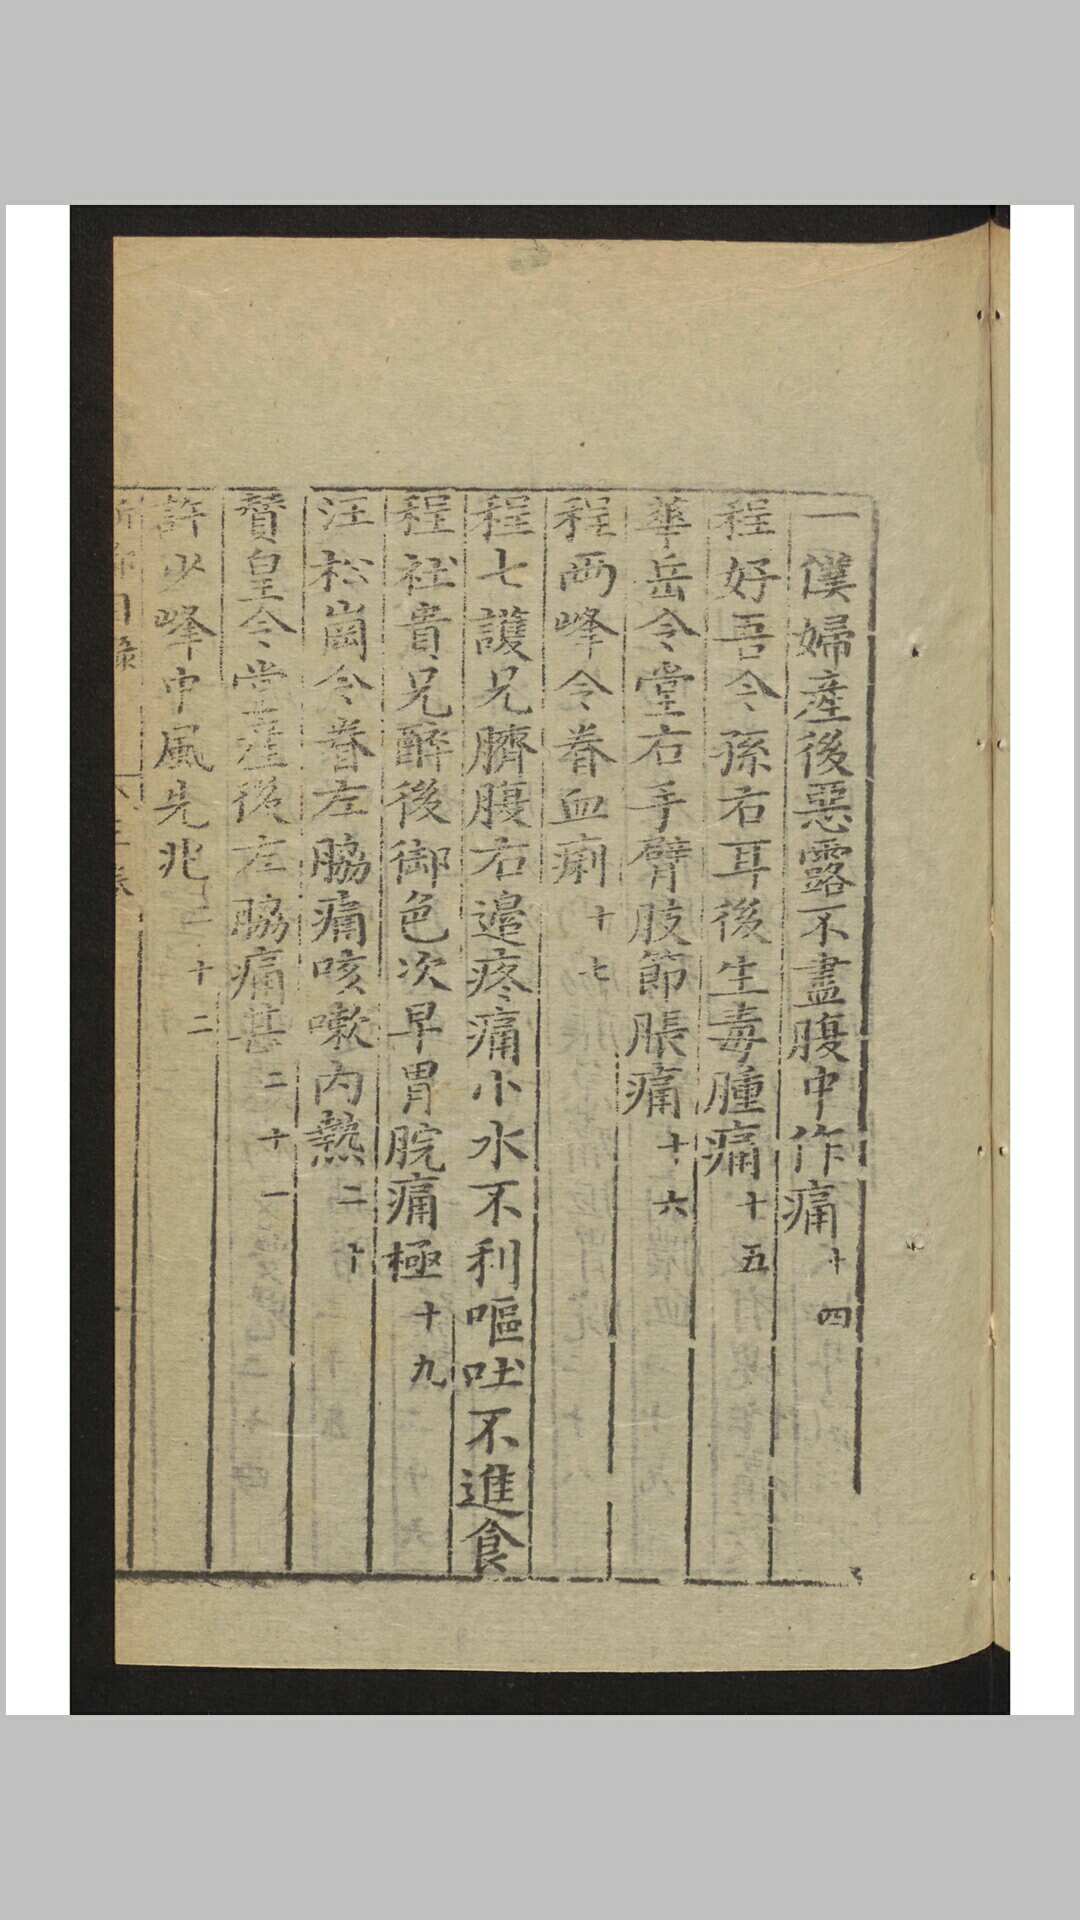 一僕婦產後惡露不盡腹中作痛十四
程好吾令孫右耳後生毒腫痛十五
華岳令堂右手臂肢節脹痛十六
程兩峰令眷血痢十七
程七護兄臍腹右邊疼痛小水不利嘔吐不進食
程社貴兄醉後御色次早胃脘痛極十九
汪松崗令眷左脇痛咳嗽內熱二十
贊皇令堂產後左脇痛甚二十一
許少峰中風先兆二十二
目錄